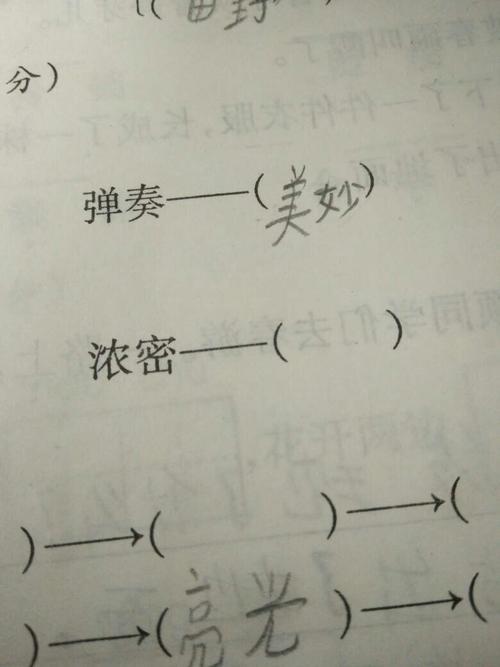 ((田野
分)
弹奏——(美妙)
浓密——( )
)→( )→(
)→(亮光)→(